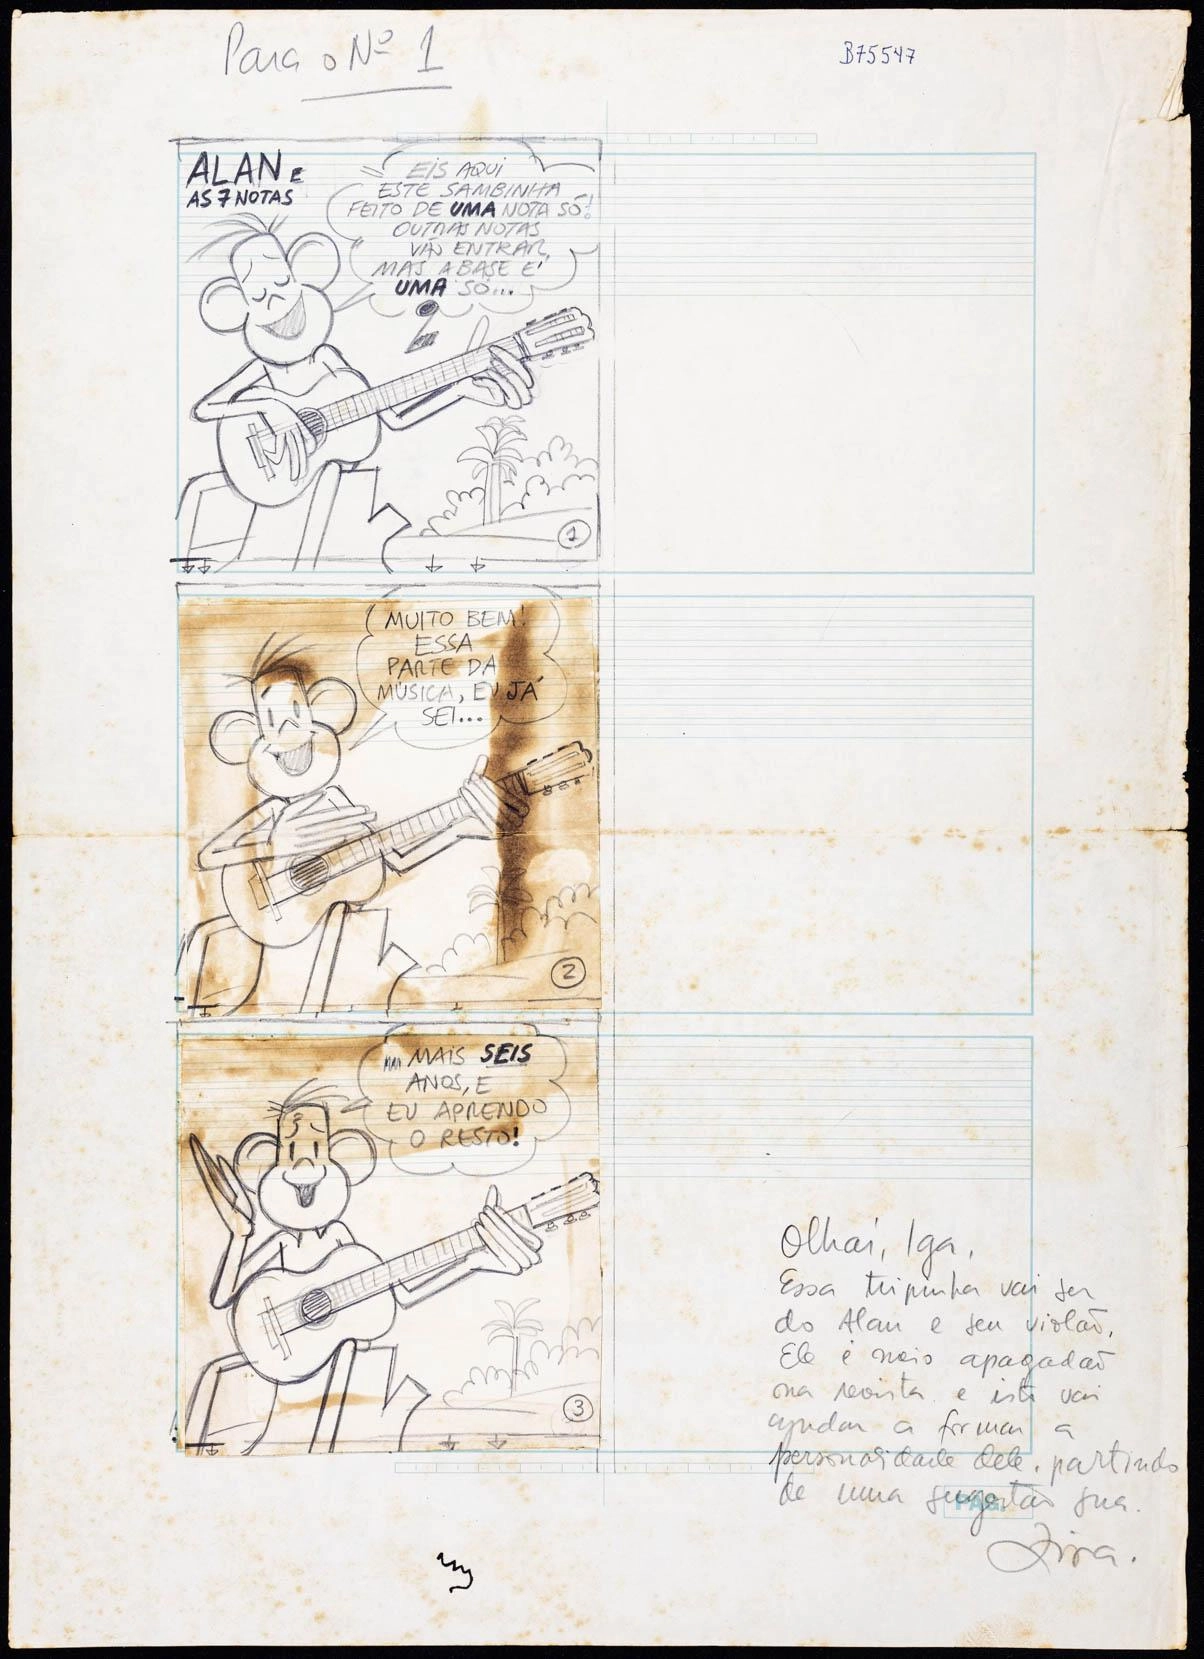 Para o Nº 1
B75547
ALAN E
AS 7 NOTAS
EIS AQUI
ESTE SAMBINHA
FEITO DE UMA NOTA SÓ!
OUTRAS NOTAS
VÃO ENTRAR,
MAS A BASE É
UMA SÓ...
1
MUITO BEM!
ESSA
PARTE DA
MÚSICA, EU JÁ
SEI...
2
... MAIS SEIS
ANOS, E
EU APRENDO
O RESTO!
3
Olhai, Iga,
Essa tripinha vai ser
do Alan e seu violão.
Ele é meio apagadão
na revista e isto vai
ajudar a formar a
personalidade dele, partindo
de uma sugestão sua.
PÁG.
Zira.